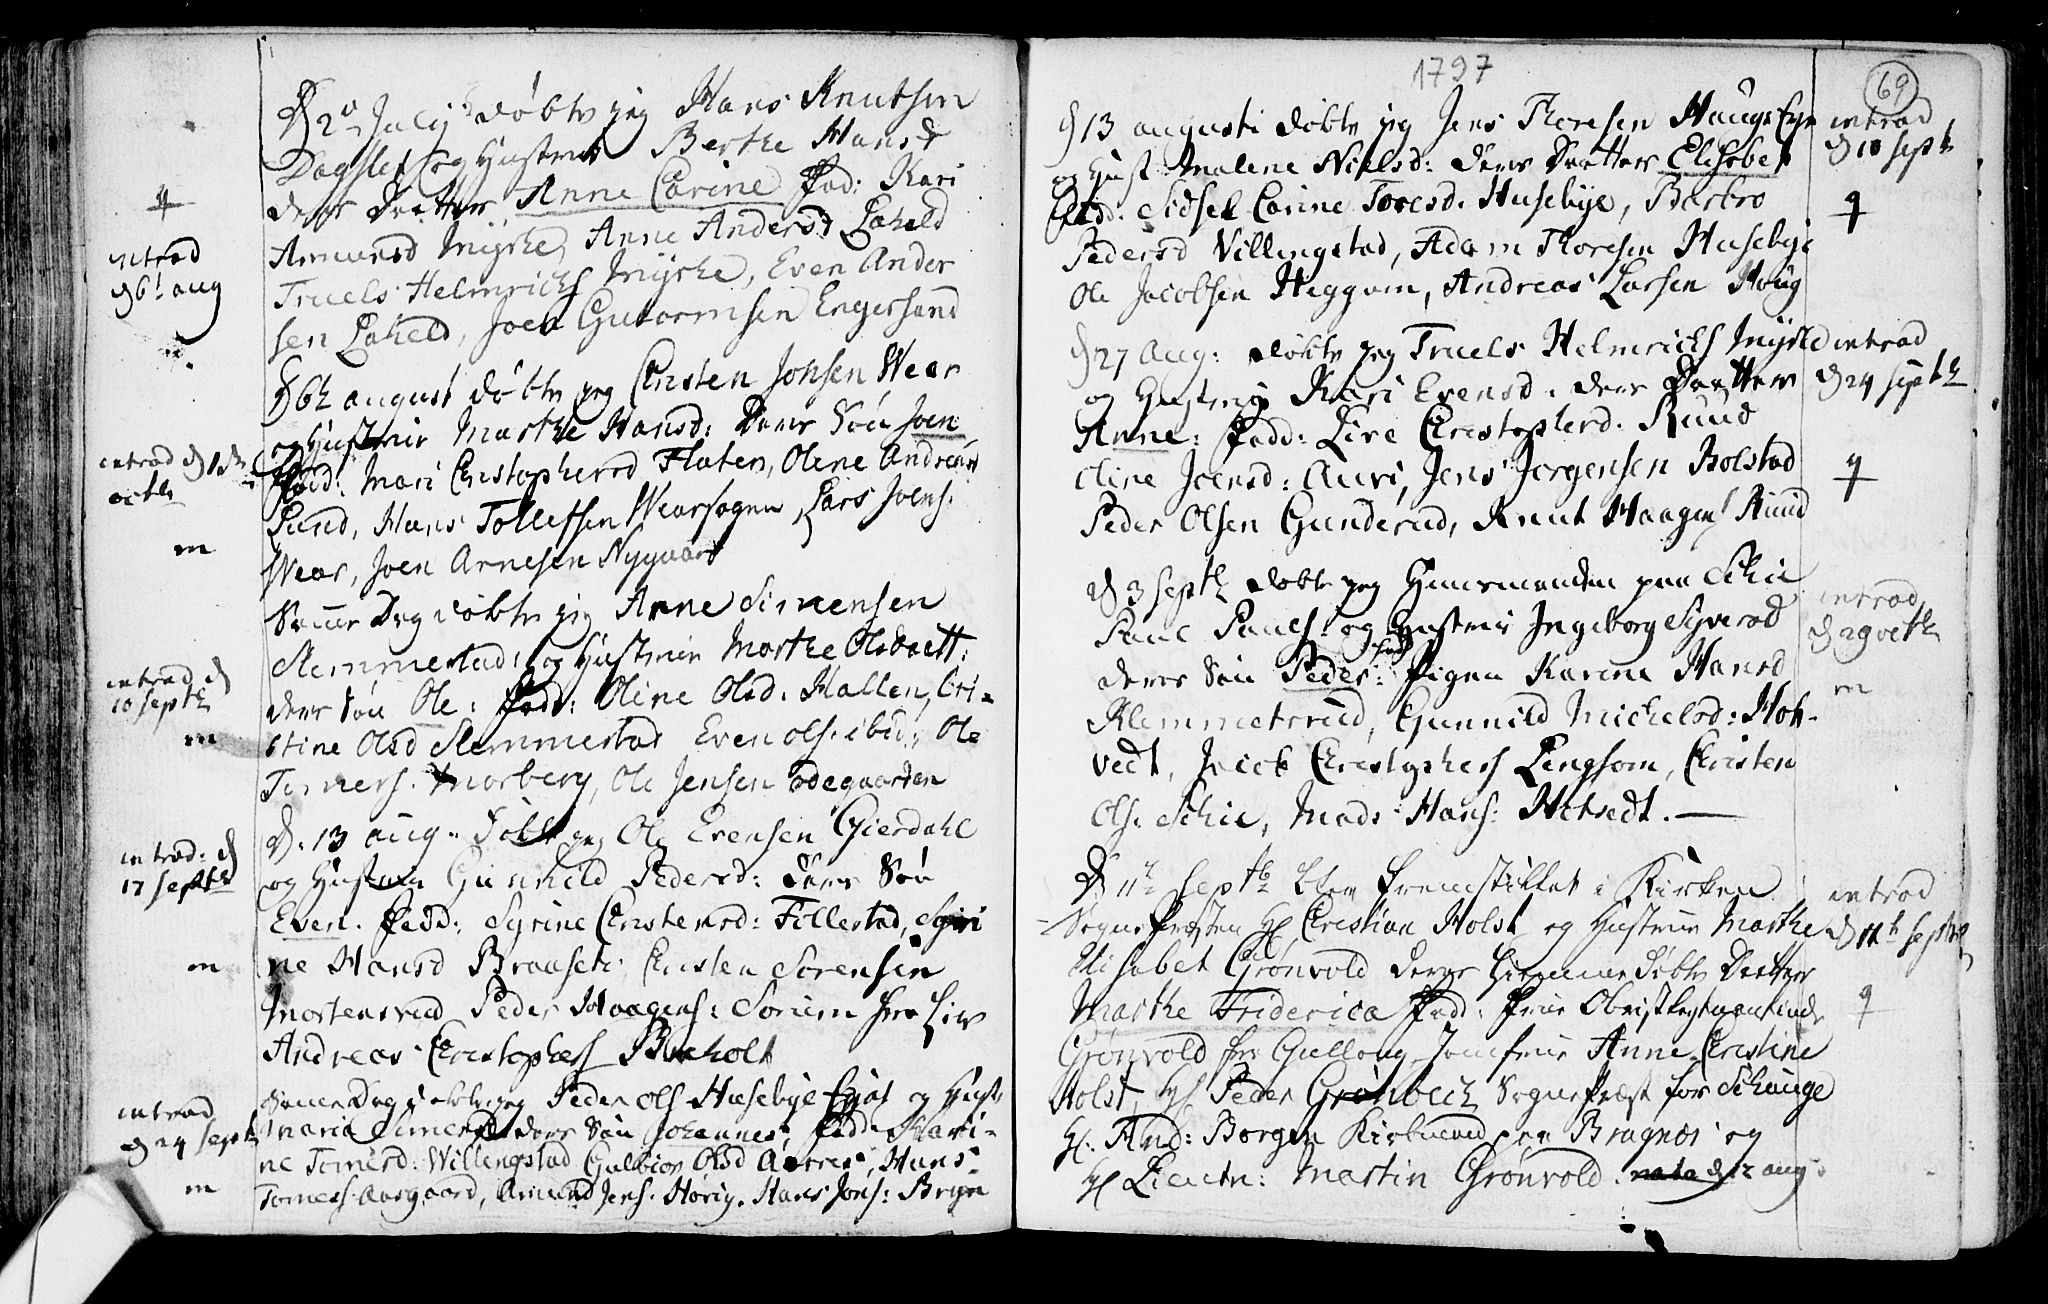 D 2 July døbte jeg Hans Knutsen
Dagslet og Hustrue Berthe Hansd
deres Daatter Anne Carine Fad: Kari
Amunsd Myrhe, Anne Andersd Laheld
Truels Helmrichs Myrhe, Even Ander
sen Laheld, Joen Guttormsen Engersand
introd
d 6t aug
D 6t august døbte jeg Christen Johsen Wear
og Hustrue Marthe Hansd: deres Søn Joen
Fad: Mari Christophersd Flaten, Oline Andreasd
Lund, Hans Tollefsen Wearsogen, Lars Joens:
Wear, Joen Arnesen Nygaard
introd d 1
octb
m
Samme Dag døbte jeg Arne Simensen
Slemmestad, og Hustrue Marthe Olsdaatt:
deres Søn Ole: Fad: Oline Olsd: Hallen, Cri-
stine Olsd Slemmestad Even Ols: ibid:, Ole
Tomers. Morberg, Ole Jensen Ødegaarden
introd d
10 septb
m
D. 13 aug. døbte jeg Ole Evensen Gierdahl
og Hustrue Gunhild Pedersd: deres Søn
Even. Fadd: Syrine Christensd: Follestad, Syri
ne Hansd Braaset, Christen Sørensen
Mortensrud Peder Haagens: Sørum
Andreas Christophers Bocholt
introd: d
17 septb
m
Samme Dag døbte jeg Peder Ols Husebye Eyat og Hust.
Maria Simensd deres Søn Johannes, Fad: Kari-
ne Tomersd: Willengstad Gulbior Olsd Aarres, Hans
Tomers Aasgaard, Amund Jens. Hørig. Hans Jons: Bryn
introd
d 24 septb
m
1797
69
d 13 augusti døbte jeg Jens Thoresen Haugs Eye
og Hust Malene Nielsd: deres Daatter Elisabet
Fadd: Sidsel Carine Toresd. Husebye, Barbro
Pedersd Villingstad, Adam Thoresen Husebye
Ole Jacobsen Heggum, Andreas Larsen Houg
introd
d 10 septb
d 27 Aug: døbte jeg Truels Helmrichs Myrhe
og Hustrue Kari Evensd. deres Daatter
Anne: Fadd: Live Christophersd. Ruud
Oline Joensd: Auvi, Jens Jørgensen Bolstad
Peder Olsen Gunderud, Knut Haagens Ruud
introd
d 24 septb
D 3 septb døbte jeg Huusmanden paa Schie
Paul Pauls: og Hustrue Ingeborg Syversd
deres Søn Peder: Fad: Pigen Karine Hansd
Klemmetsrud, Gunnild Michelsd: Hot-
vedt, Jacob Christophers Lengsom, Christen
Ols. Schie, Mads Hans: Hotvedt.
introd
d 29 octb
m
D 11t septb blev fremstillet i Kirken
Sognepræsten Hr Christian Holst og Hustrue Marthe
Elisabet Grønvold deres hiemmedøbte Daatter
Marthe Friderica Fad: Frue Obristleytnantinde
Grønvold fra Gulloug Jomfrue Anne Cristine
Holst, Hr Peder Grønbech Sognepræst for Schauge
Hr. And: Borgen Kirkeværge paa Bragnæs og
Hr Lieutn: Martin Grønvold. nata d 12 aug
introd
d 11t septb